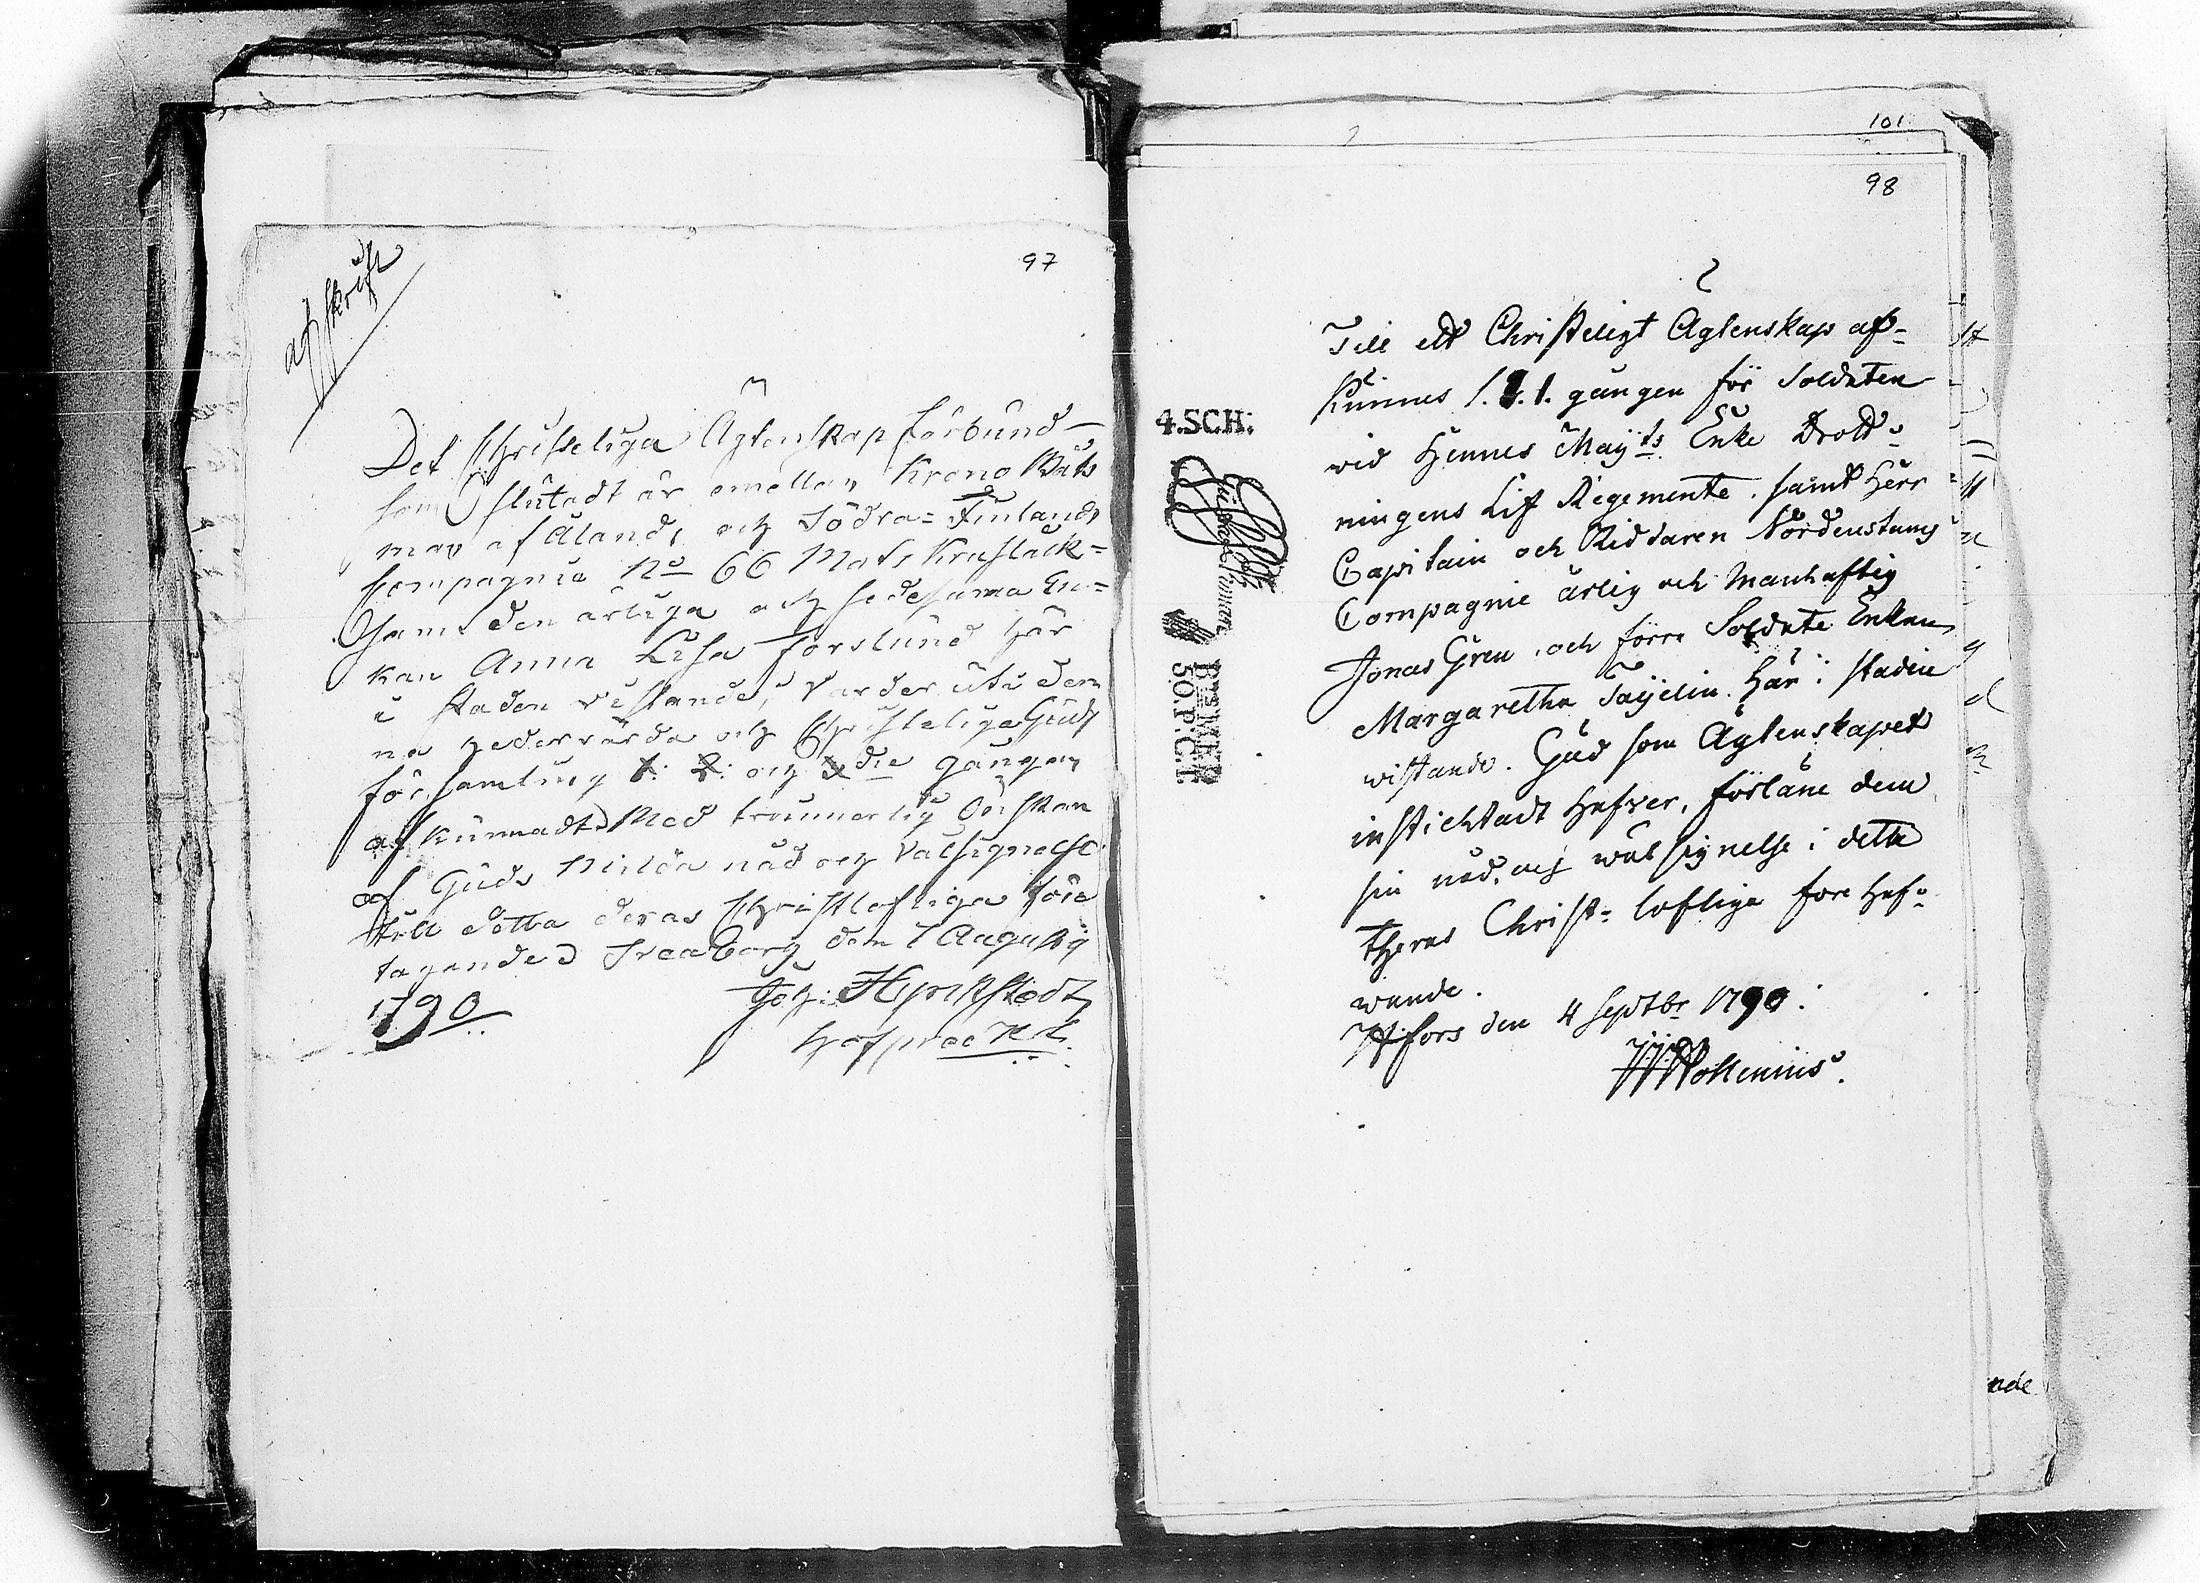 97
afskrift
Det Christeliga Ägtenskap förbund
som slutadt är emellan Krono Båts
man af Åland, och Södra=Finlands
Compagnie No 66 Mats Kruslack=
Sam den ärliga och sedesamma En=
kan Anna Lisa Forslund här
i staden vistande, varder uti den
na hedervärda och Christeliga Guds
församling 1: 2: och 3die gången
afkunnadt Med träunnerlig Önskan
af Guds Milda nåd och Välsignelse
till detta deras Christlofliga före
tagande Sveaborg den 7 Augusty
1790 Joh: Hynckstedt
Hofpred
101
98
Till ett Christeligt Ägtenskap af=
kunnes 1. 1. 1. gången för Soldaten
vid Hennes Mayts Enke Drott=
ningens Lif Regemente, samt Herr
Capitain och Riddaren Nordenstams
Compagnie ärlig och Manhaftig
Jonas Gren, och förra Soldate Enkan
Margaretha Tayelin. här i staden
wistande. Gud som Ägtenskapet
instichtadt hafver, förläne dem
sin nåd, och wälsignelse i detta
theras Christ= loflige fore haf=
wande.
Hfors den 4 Septbr 1790.
4.SCH:
50.P.C.T.
nde